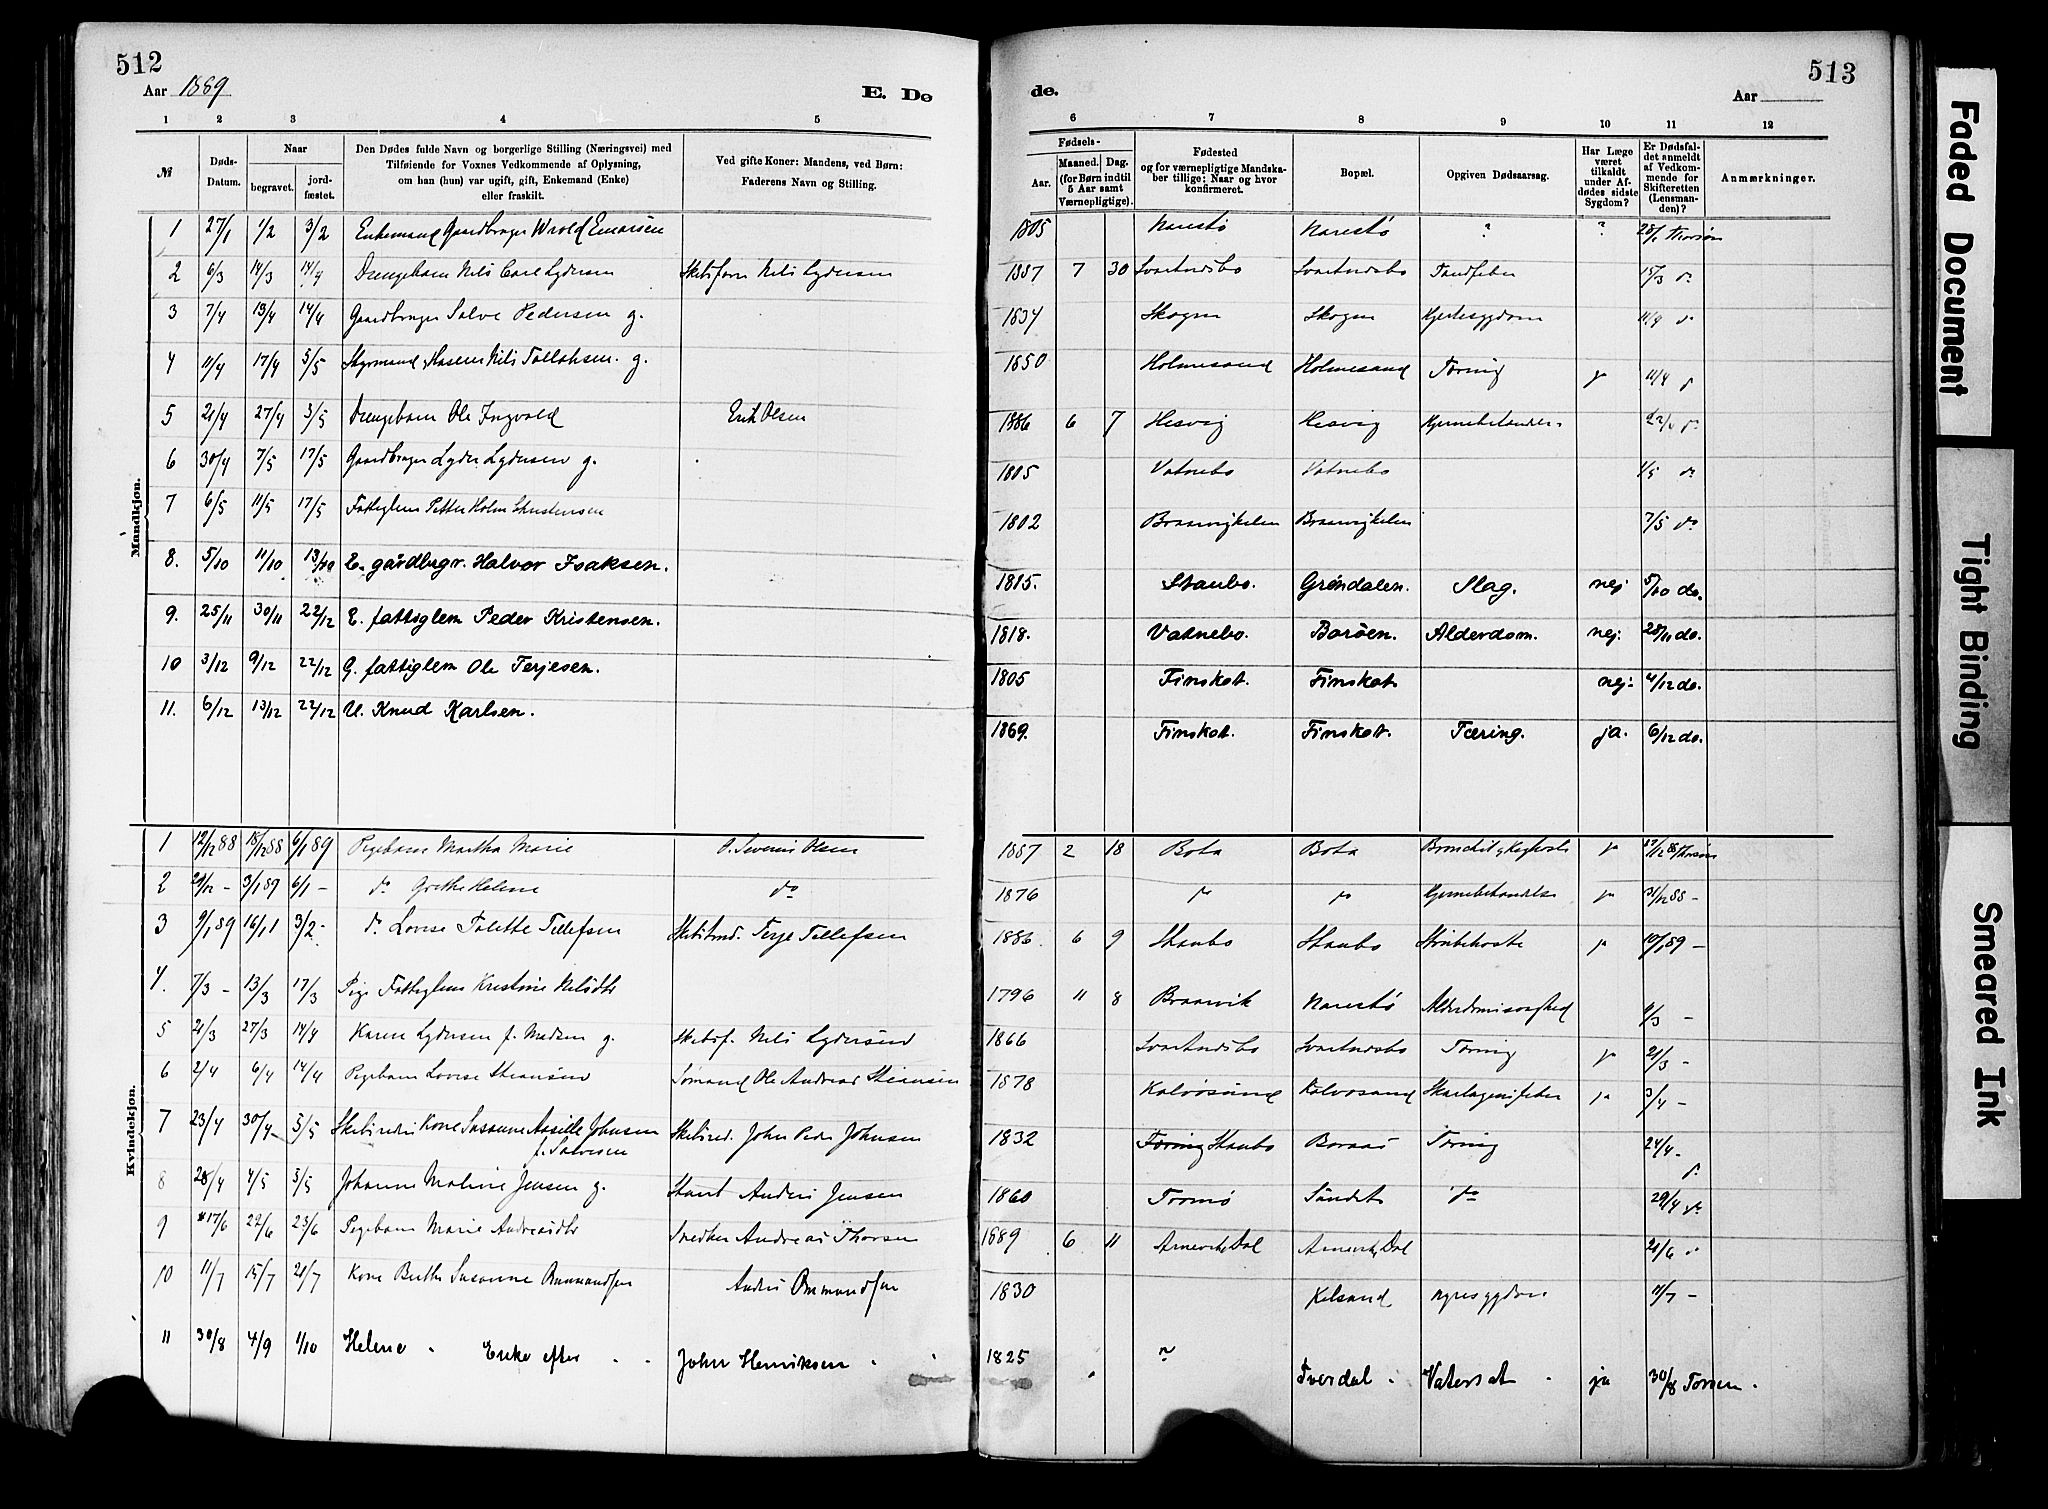 512
Aar 1889
E. Dø
1 2 3 4 5
№
Døds-Datum.
Naar
begravet.
jord-fæstet.
Den Dødes fulde Navn og borgerlige Stilling (Næringsvei) med
Tilføiende for Voxnes Vedkommende af Oplysning,
om han (hun) var ugift, gift, Enkemand (Enke)
eller fraskilt.
Ved gifte Koner: Mandens, ved Børn:
Faderens Navn og Stilling.
Mandkjøn.
1 27/1 1/2 3/2 Enkemand Gaardbruger
2 6/3 14/3 14/4 Drengebarn Nils Carl Lydersen Nils Lydersen
3 7/4 13/4 14/4 Gaardbruger Salve Pedersen g.
4 11/4 17/4 5/5 Styrmand Nils Tallaksen g.
5 21/4 27/4 3/5 Drengebarn Ole Ingvald Erik Olsen
6 30/4 7/5 17/5 Gaardbruger Lyder Lydersen g.
7 6/5 11/5 17/5 Fattiglem Petter Holm
8. 5/10 11/10 13/10 E. gårdbrgr. Halvor Isaksen.
9. 25/11 30/11 22/12 E. fattiglem Peder Kristensen.
10 3/12 9/12 22/12 G. fattiglem Ole Terjesen.
11. 6/12 13/12 22/12 U. Knud Karlsen.
Kvindekjøn.
1 12/12 88 18/12 88 6/1 89 Pigebarn Martha Marie Severin Olsen
2 29/12 - 3/1 89 6/1 - do Grethe Helene do
3 9/1 89 16/1 3/2 - do Lovise Talette Tellefsen Terje Tellefsen
4. 7/3 - 13/3 17/3 Pige Fattiglem Kristine Nilsdtr
5 21/3 27/3 14/4 Karen Lydersen f. Madsen g. Nils Lydersen
6 2/4 6/4 14/4 Pigebarn Lovise Stiansen Sømand Ole Andreas Stiansen
7 23/4 30/4 5/5 Kone Susanne Johnsen John Peder Johnsen
f. Salvesen
8 28/4 4/5 5/5 Johanne Maline Jensen g. Anders Jensen
9 17/6 22/6 23/6 Pigebarn Marie Andreasdtr Snedker Andreas Thorsen
10 11/7 15/7 21/7 Kone Berthe Susanne Anders
11 30/8 4/9 1/10 Helene Enke efter John Henriksen
513
de.
Aar
6 7 8 9 10 11 12
Fødsels-
Aar.
Maaned. Dag.
(for Børn indtil
5 Aar samt
Værnepligtige).
Fødested
og for værnepligtige Mandska-
ber tillige: Naar og hvor
konfirmeret.
Bopæl.
Opgiven Dødsaarsag.
Har Læge
været
tilkaldt
under Af-
dødes sidste
Sygdom?
Er Dødsfal-
det anmeldt
af Vedkom-
mende for
Skifteretten
(Lensman-
den)?
Anmærkninger.
1805 Narestø Narestø ? ? 28/1
1887 7 30 15/3 do
1834 Skogen Skogen Hjertesygdom 11/4 do
1850 Holmesand Holmesand Tæring ja 11/4 do
1886 6 7 Hesvig Hesvig 22/4 do
1805 Vatnebo Vatnebo 1/5 do
1802 Braavigkilen Braavigkilen 7/5 do
1815. Staubo. Grøndalen. Slag. nej 5/10 do.
1818. Vatnebo. Borøen. Alderdom. nej. 28/11 do.
1805 Finsket. Finsket nej. 4/12 do.
1869. Finsket. Finsket. Tæring. ja. 6/12 do.
1887 2 18 Bota Bota ja
1876 do do ja 31/12 88 -
1886 6 9 Staubo Staubo Strubehoste ja 10/1 89 -
1796 11 8 Braavik Narestø Alderdomssvaghed 9/3 -
1866 Tæring ja 21/3 -
1878 Kalvøsund Kalvøsund Skarlagensfeber ja 3/4 -
1832 Tæring Staubo Boraas Tæring 24/4 - do
1860 Tromø Sundet do 29/4 do
1889 6 11 Arnevik, Dal Arnevik, Dal 21/6 do
1830 Kilsund Nyresygdom 11/7 -
1825 Tverdal Vatersot ja 30/8 Torsen
Faded Document
Tight Binding
Smeared Ink